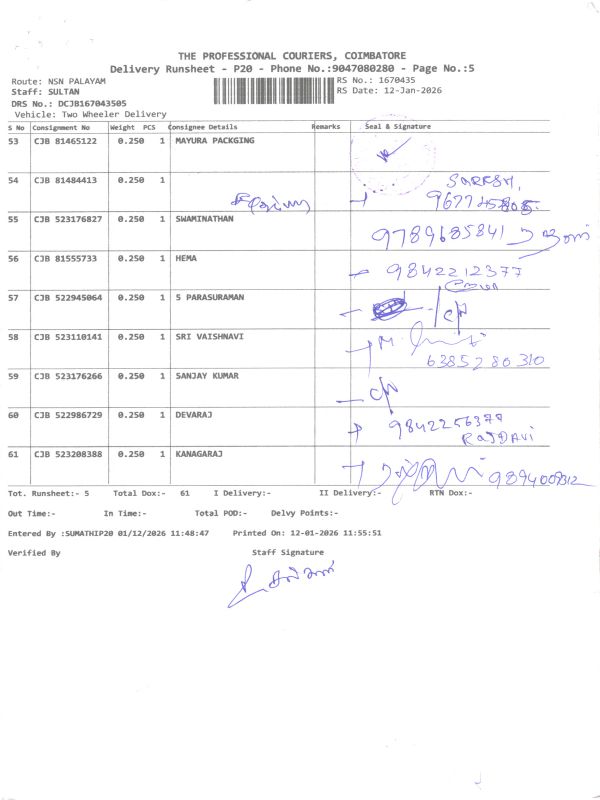 THE PROFESSIONAL COURIERS, COIMBATORE
Delivery Runsheet - P20 - Phone No.:9047080280 - Page No.:5
Route: NSN PALAYAM
RS No.: 1670435
Staff: SULTAN
RS Date: 12-Jan-2026
DRS No.: DCJB167043505
Vehicle: Two Wheeler Delivery
S No Consignment No Weight PCS Consignee Details Remarks Seal & Signature
53 CJB 81465122 0.250 1 MAYURA PACKGING
54 CJB 81484413 0.250 1 SURESH,
55 CJB 523176827 0.250 1 SWAMINATHAN 9789685841
56 CJB 81555733 0.250 1 HEMA 9842212377
57 CJB 522945064 0.250 1 S PARASURAMAN
58 CJB 523110141 0.250 1 SRI VAISHNAVI
6385280310
59 CJB 523176266 0.250 1 SANJAY KUMAR
60 CJB 522986729 0.250 1 DEVARAJ 9842256377
61 CJB 523208388 0.250 1 KANAGARAJ
Tot. Runsheet:- 5 Total Dox:- 61 I Delivery:- II Delivery:- RTN Dox:-
Out Time:- In Time:- Total POD:- Delvy Points:-
Entered By :SUMATHIP20 01/12/2026 11:48:47 Printed On: 12-01-2026 11:55:51
Verified By Staff Signature